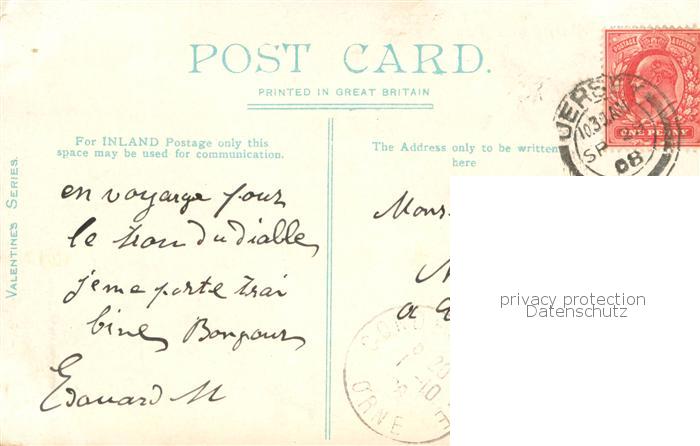 POST CARD.
PRINTED IN GREAT BRITAIN
For INLAND Postage only this
space may be used for communication.
The Address only to be written
here
VALENTINE'S SERIES.
en voyage pour
le trou du diable
je me porte trai
bine Bonjour
Edouard M
Mons
a
privacy protection
Datenschutz
POSTAGE
ONE PENNY
JERSEY
10.30 AM
SP
08
ORNE